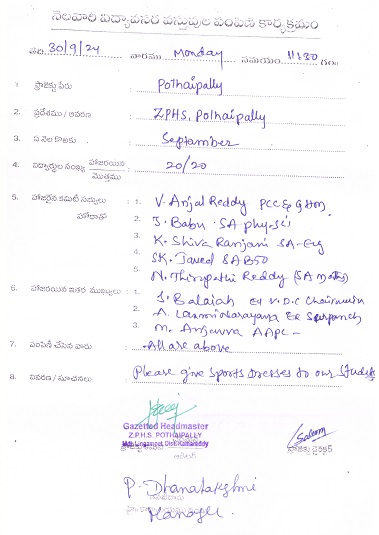 నెలవారి విద్యావసర వస్తువుల పంపిణి కార్యక్రమం
తేది. 30/9/24 వారము Monday సమయం. 11:30 గం॥
1. ప్రాజెక్టు పేరు Pothaipally
2. ప్రదేశము / ఆవరణ Z.P.H.S, Pothaipally
3. ఏ నెల కొఱకు September
4. విద్యార్థుల సంఖ్య హాజరయిన / మొత్తము 20/20
5. హాజరైన కమిటీ సభ్యులు హోదాతో 1. V. Anjal Reddy
2. J. Babu SA phy-sci
3. K. Shiva Ranjani SA-Eng
4. SK. Javed SA BSO
5. N. Thirupathi Reddy (SA maths)
6. హాజరయిన ఇతర ముఖ్యులు 1. S. Balaiah Ex V.D.C Chairman
2. A. Laxminarayana Ex Surpanch
3. m. Anjanna AAPC
7. పంపిణీ చేసిన వారు All are above
8. వివరణ / సూచనలు Please give sports Dresses to our Students
Gazetted Headmaster
Z.P.H.S. POTHAIPALLY
Mdl: Lingampet, Dist: Kamareddy
Saleem
ప్రాజెక్టు డైరెక్టర్
P. Dhanalakshmi
Manager